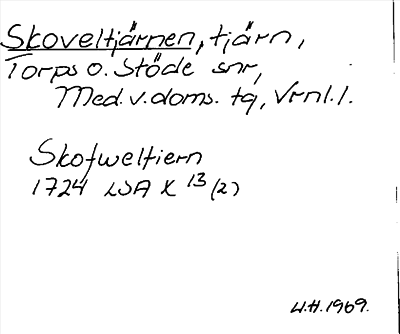 Skoveltjärnen, tjärn,
Torps o. Stöde snr,
Med. v. doms. tg, Vrnl. l.
Skofweltiern
1724 LSA X 13 (2)
U.H. 1969.